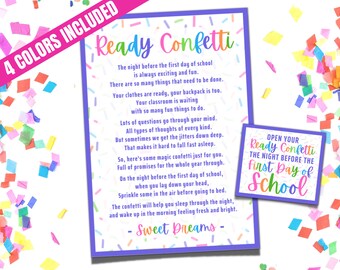 4 COLORS INCLUDED
Ready Confetti
The night before the first day of school
is always exciting and fun.
There are so many things that need to be done.
Your clothes are ready, your backpack is too.
Your classroom is waiting
with so many fun things to do.
Lots of questions go through your mind.
All types of thoughts of every kind.
But sometimes we get the jitters down deep.
That makes it hard to fall fast asleep.
So, here's some magic confetti just for you.
Full of promises for the whole year through.
On the night before the first day of school,
when you lay down your head,
Sprinkle some in the air before going to bed.
The confetti will help you sleep through the night,
and wake up in the morning feeling fresh and bright.
- Sweet Dreams -
OPEN YOUR
Ready Confetti
THE NIGHT BEFORE THE
First Day of
School